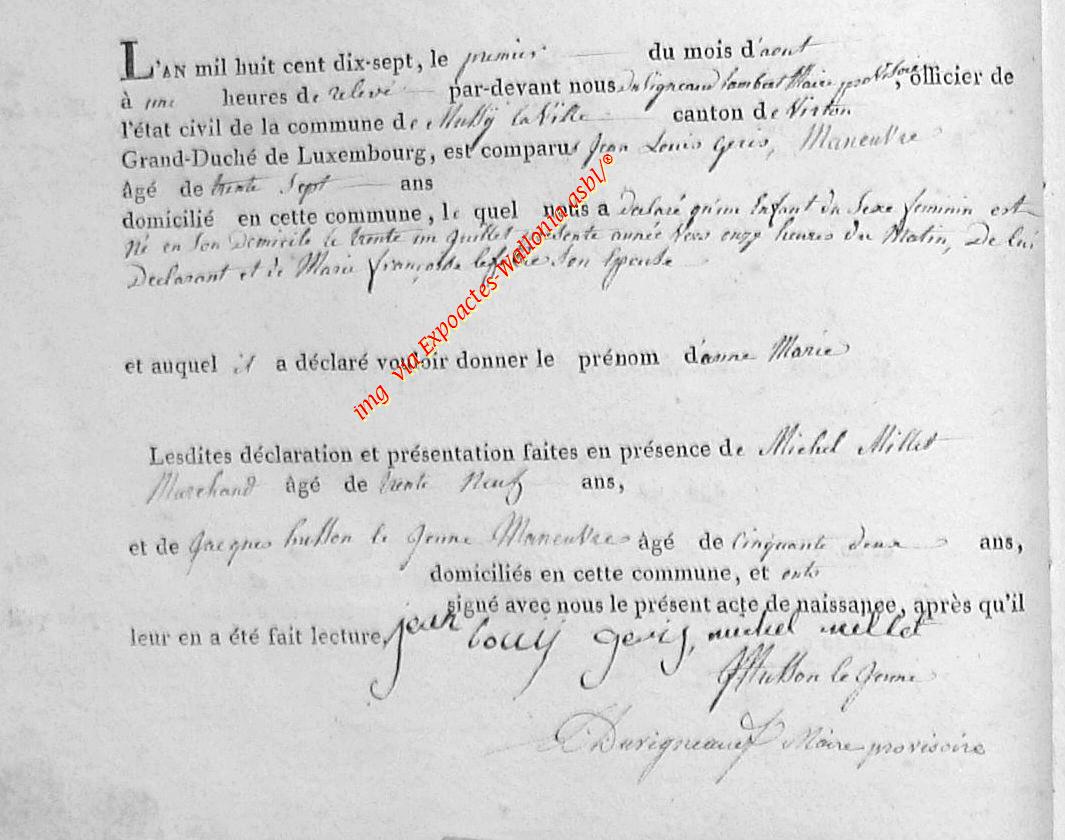 L'AN mil huit cent dix-sept, le premier du mois d'aout
à une heures de relevé par-devant nous Duvigneaud lambert Maire provisoire, officier de
l'état civil de la commune de Mussy la Ville canton de Virton
Grand-Duché de Luxembourg, est comparu Jean Louis Geris, Maneuvre
âgé de trente Sept ans
domicilié en cette commune, le quel nous a declaré qu'un Enfant du Sexe feminin est
Né en Son Domicile le trente un Juillet présente année vers onze heures du Matin, De lui
Declarant et de Marie françoise lefebvre Son Epouse
et auquel il a déclaré vouloir donner le prénom d'anne Marie
Lesdites déclaration et présentation faites en présence de Michel Millet
Marchand âgé de trente Neuf ans,
et de Jacques husson le Jeune Maneuvre âgé de Cinquante deux ans,
domiciliés en cette commune, et ont
signé avec nous le présent acte de naissance, après qu'il
leur en a été fait lecture, jean louij gerij, michel millet
JHusson le Jeune
Duvigneaud Maire provisoire
img via Expoactes-Wallonia.asbl/®